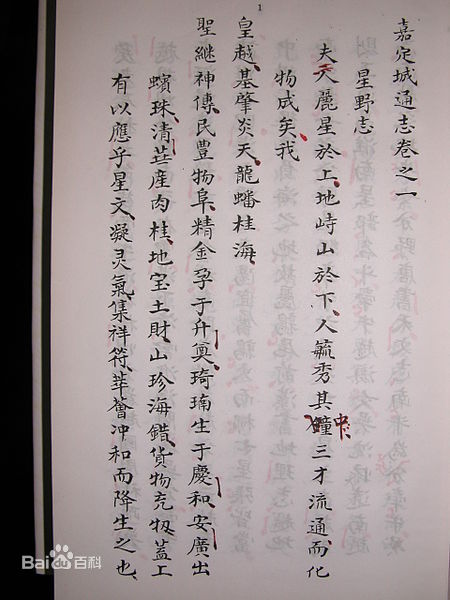 1
嘉定城通志卷之一
星野志
夫天麗星於上地峙山於下人毓秀其中鐘三才流通而化
物成矣我
皇越基肇炎天龍蟠桂海
聖継神傳民豊物阜精金孕于升奠琦㻴生于慶和安廣出
蠙珠清産肉桂地宝土財山珍海錯貨物充牣蓋上
有以應乎星文凝灵氣集祥符萃薈冲和而降生之也
Bai百科